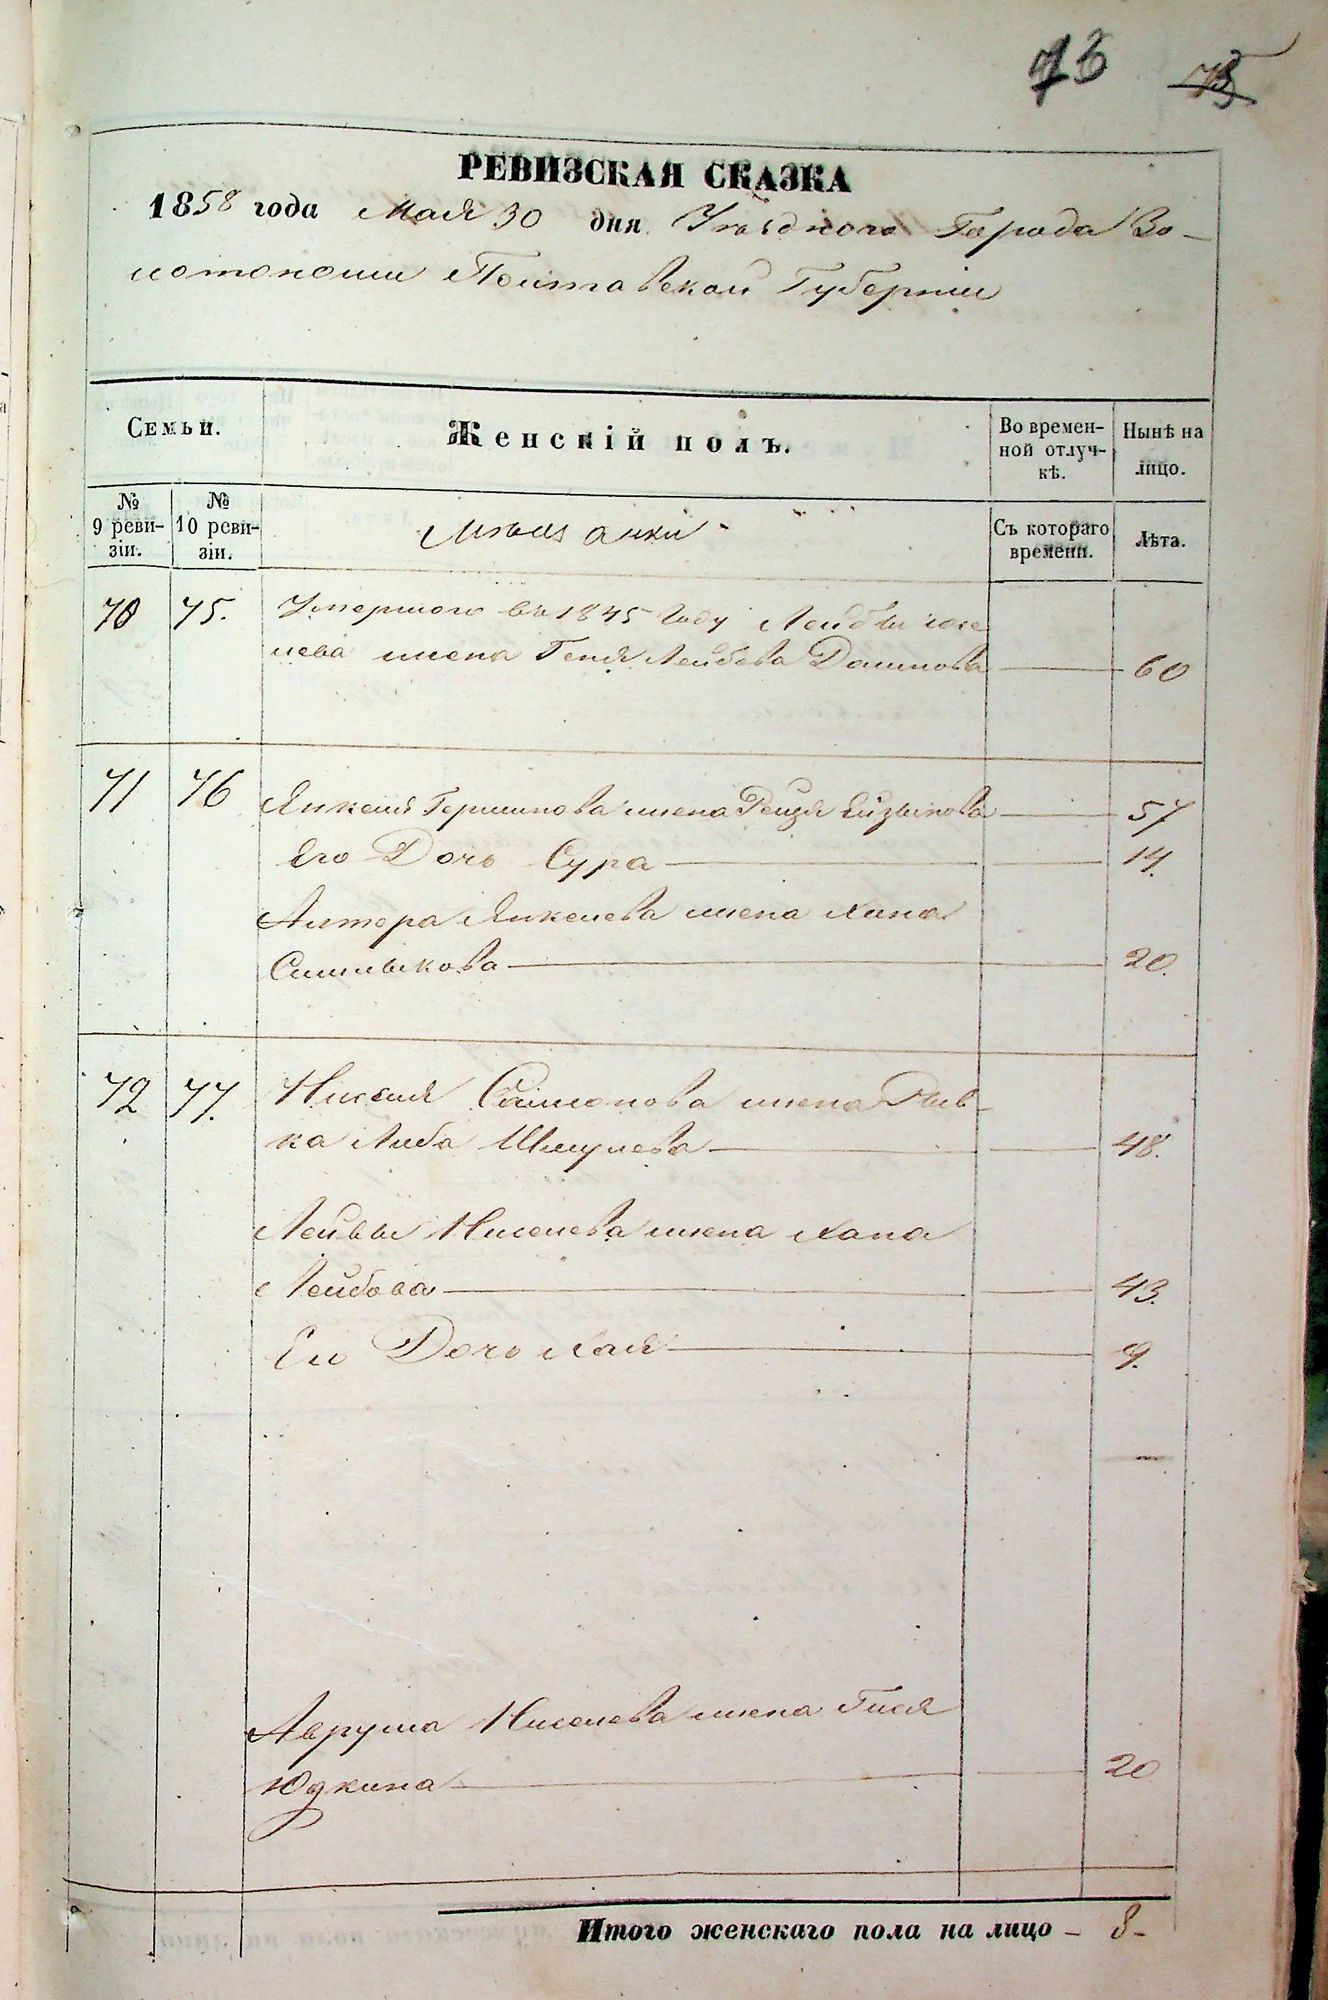 73 73
РЕВИЗСКАЯ СКАЗКА
1858 года Мая 30 дня Уѣзднаго Города Зо-
лотоноши Полтавской Губерніи
Семьи. Женскій полъ. Во времен-ной отлуч-кѣ. Нынѣ на лицо.
№ 9 реви-зіи. № 10 реви-зіи. Мѣщанки Съ котораго времени. Лѣта.
70 75. Умершаго въ 1845 году Лейбы
лева жена Геня Лейбова 60
71 76 Янкеля Гершинова жена Рейзя Айзыкова 57
Его Дочь Сура 14.
Алтера Янкелева жена Хана
20.
72 77. Ниселя жена Рив-
ка Либа Шмулева 48.
Лейвы Ниселева жена Хана
Лейбова 43.
Его Дочь Хая 9.
Аврума Ниселева жена Гися
Юдкина 20
Итого женскаго пола на лицо - 8-